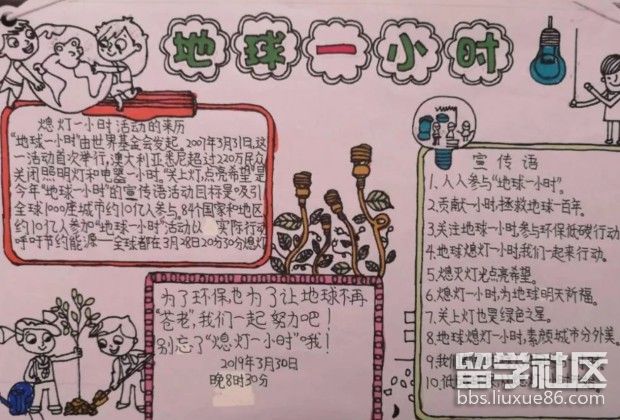 地球一小时
熄灯一小时活动的来历
"地球一小时"由世界基金会发起。2007年3月31日,这
一活动首次举行,澳大利亚悉尼超过220万民众
关闭照明灯和电器一小时"关上灯,点亮希望"是
今年"地球一小时"的宣传语活动目标是吸引
全球1000座城市约10亿人参与。84个国家和地区
约10亿人参加"地球一小时"活动以实际行动
呼吁节约能源——全球都在3月28日20分30分熄灯
为了环保,也为了让地球不再
"苍老",我们一起努力吧!
别忘了"熄灯一小时"哦!
2019年3月30日
晚8时30分
宣传语
1.人人参与"地球一小时"。
2.贡献一小时,拯救地球一百年。
3.关注地球一小时参与环保低碳行动
4.地球熄灯一小时,我们一起来行动。
5.熄灭灯光点亮希望。
6.熄灯一小时,为地球明天祈福。
7.关上灯也是绿色之星。
8.地球熄灯一小时,素颜城市分外美。
9.我们
10.低
留学社区
bbs.liuxue86.com